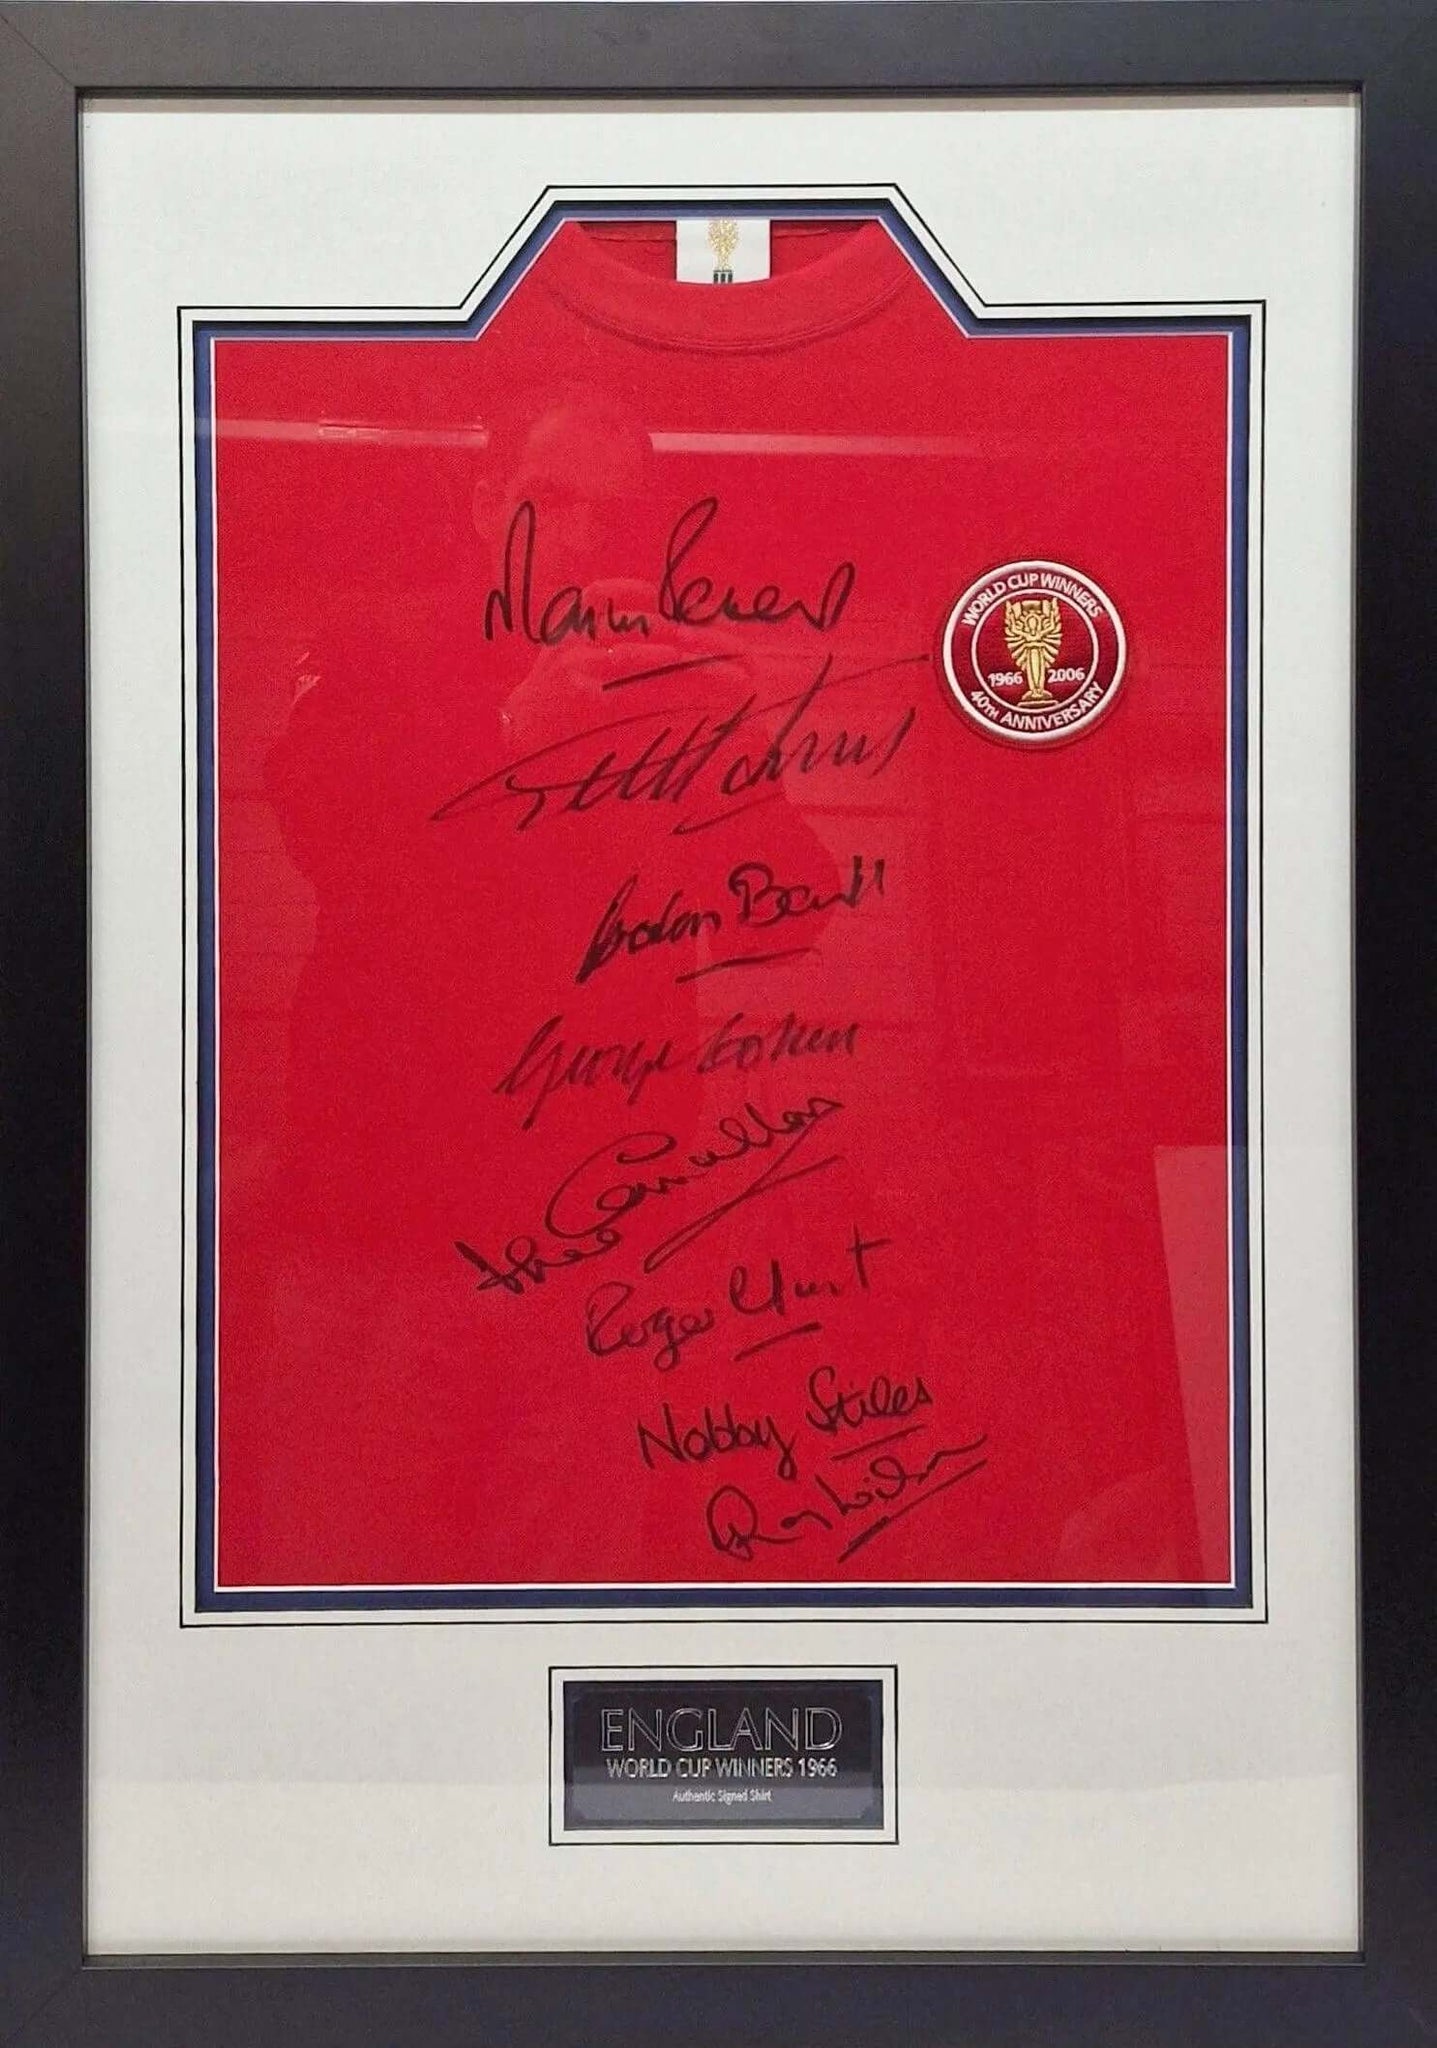 WORLD CUP WINNERS
1966 2006
40TH ANNIVERSARY
Martin Peters
Geoff Hurst
Gordon Banks
George Cohen
John Connelly
Roger Hunt
Nobby Stiles
Ray Wilson
ENGLAND
WORLD CUP WINNERS 1966
Authentic Signed Shirt